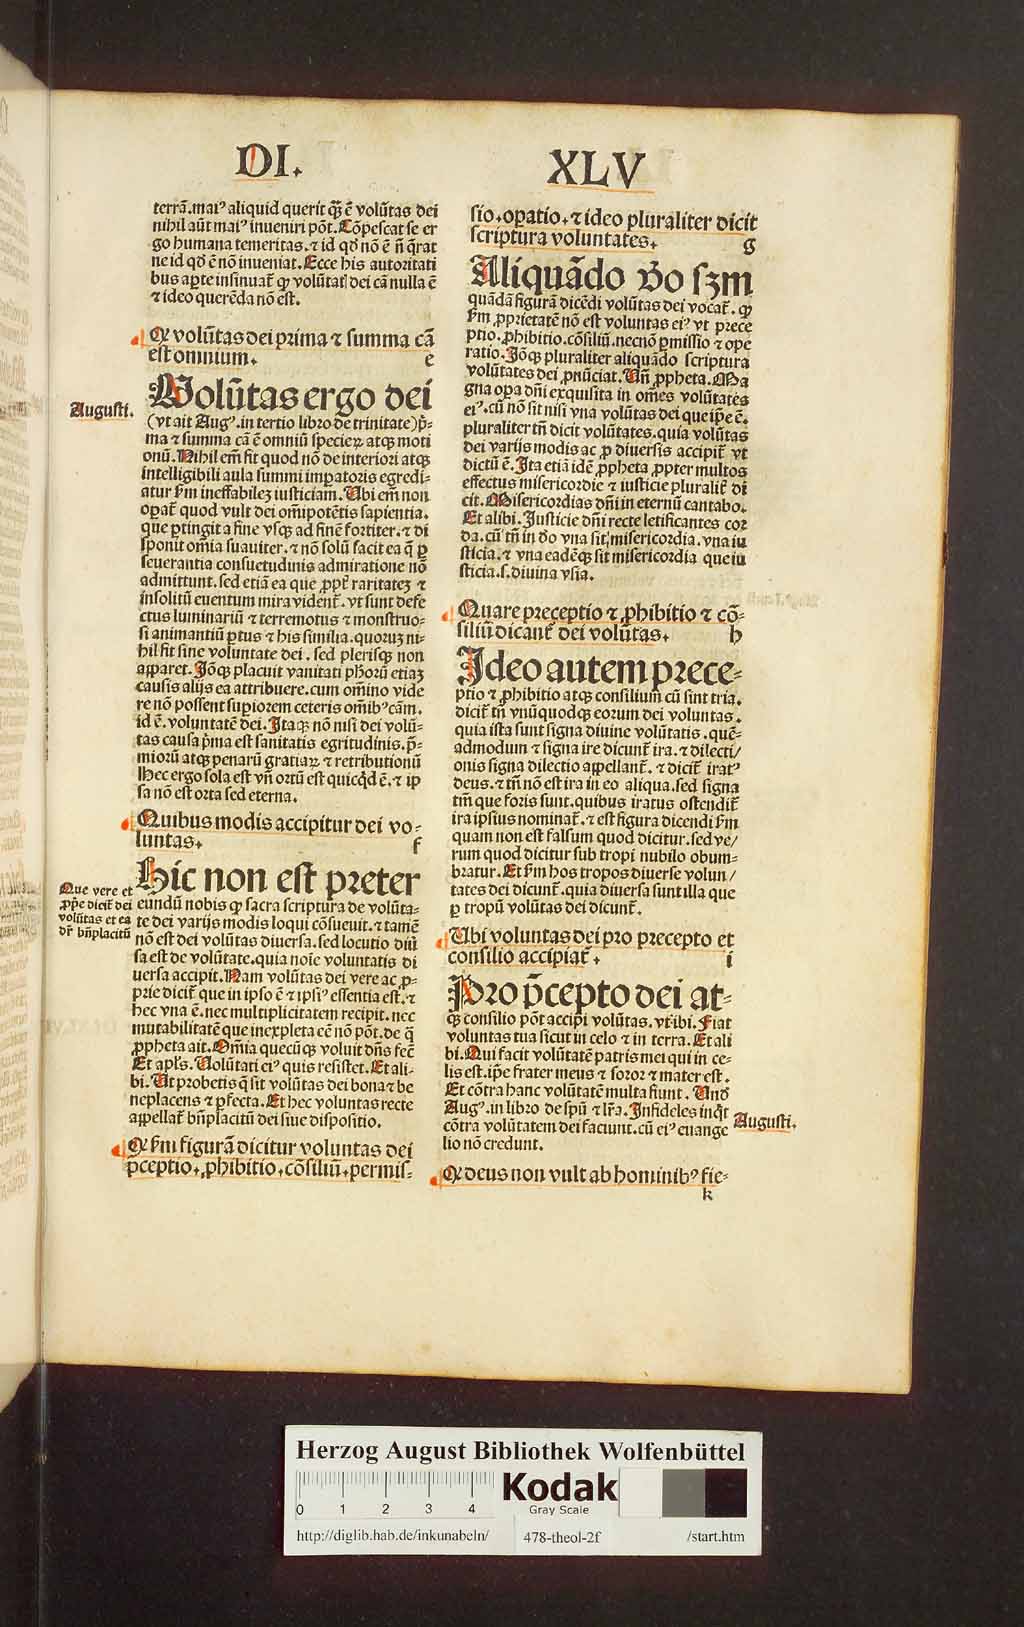 DI.
XLV
terrā.maiꝰ aliquid querit q̄ꝫ ē volūtas dei
nihil aūt maiꝰ inueniri pōt. Cōpescat se er
go humana temeritas.⁊ id qđ nō ē n̄ q̄rat
ne id qđ ē nō inueniat. Ecce his autoritati
bus aꝑte insinuat̄ ꝙ volūtatꝭ dei cā nulla ē
⁊ ideo querēda nō est.
Ꝙ volūtas dei prima ⁊ summa cā
est omnium. e
Augusti.
Volūtas ergo dei
(vt ait Augꝰ.in tertio libro de trinitate) p̄-
ma ⁊ summa cā ē omniū specieꝝ atqꝫ moti
onū. Nihil em̄ fit quod nō de interiori atqꝫ
intelligibili aula summi imꝑatoris egredi-
atur ẜm ineffabilez iusticiam. Vbi em̄ non
oꝑat̄ quod vult dei om̄ipotētis sapientia.
que ꝑtingit a fine vsqꝫ ad finē fortiter.⁊ di
sponit om̄ia suauiter.⁊ nō solū facit ea q̄ ꝑ
seuerantia consuetudinis admiratione nō
admittunt. sed etiā ea que ꝓpt̄ raritatez ⁊
insolitū euentum mira vident̄. vt sunt defe
ctus luminariū ⁊ terremotus ⁊ monstruo-
si animantiū ꝑtus ⁊ his similia. quoruꝫ ni-
hil fit sine voluntate dei. sed plerisqꝫ non
apparet. Jdōqꝫ placuit vanitati ph̄orū etiaꝫ
causis alijs ea attribuere. cum om̄ino vide
re nō possent suꝑiorem ceteris om̄ibꝰ cām.
id ē. voluntatē dei. Jtaqꝫ nō nisi dei volū-
tas causa p̄ma est sanitatis egritudinis. p̄-
miorū atqꝫ penarū gratiaꝝ ⁊ retributionū
Hec ergo sola est vn̄ ortū est quicq̄d ē.⁊ ip
sa nō est orta sed eterna.
Quibus modis accipitur dei vo-
luntas. f
Que vere et
ꝓp̄e dicit̄ dei
volūtas et ea
dr̄ bn̄placitū
Hic non est preter
eundū nobis ꝙ sacra scriptura de volūta-
te dei varijs modis loqui cōsueuit.⁊ tamē
nō est dei volūtas diuersa. sed locutio diū
sa est de volūtate. quia noīe voluntatis di
uersa accipit. Nam volūtas dei vere ac ꝓ-
prie dicit̄ que in ipso ē ⁊ ipsiꝰ essentia est.⁊
hec vna ē. nec multiplicitatem recipit. nec
mutabilitatē que inexpleta eē nō pōt. de q̄
ꝓpheta ait. Om̄ia quecūqꝫ voluit dn̄s fecē
Et apl̄s. Volūtati eiꝰ quis resistet. Et ali-
bi. Vt probetis q̄ sit volūtas dei bona ⁊ be
neplacens ⁊ ꝑfecta. Et hec voluntas recte
appellat̄ bn̄placitū dei siue dispositio.
Ꝙ ẜm figurā dicitur voluntas dei
p̄ceptio.ꝓhibitio.cōsiliū.permis-
sio.oꝑatio.⁊ ideo pluraliter dicit
scriptura voluntates. g
Aliquādo v̄o sꝫm
quādā figurā dicēdi volūtas dei vocat̄. ꝙ
ẜm ꝓprietatē nō est voluntas eiꝰ vt prece
ptio.ꝓhibitio.cōsiliū.necnō ꝑmissio ⁊ ope
ratio. Jdōqꝫ pluraliter aliquādo scriptura
volūtates dei ꝓnūciat. Vn̄ ꝓpheta. Ma
gna opa dn̄i exquisita in om̄es volūtates
eiꝰ. cū nō sit nisi vna volūtas dei que ip̄e ē.
pluraliter tn̄ dicit volūtates. quia volūtas
dei varijs modis ac ꝓ diuersis accipit̄ vt
dictū ē. Jta etiā idē ꝓpheta ꝓpter multos
effectus misericordie ⁊ iusticie pluralit̄ di
cit. Misericordias dn̄i in eternū cantabo.
Et alibi. Justicie dn̄i recte letificantes cor
da. cū tn̄ in deo vna sit misericordia. vna iu
sticia.⁊ vna eadēqꝫ sit misericordia que iu
sticia.s.diuina vsia.
Quare preceptio ⁊ ꝓhibitio ⁊ cō-
siliū dicant̄ dei volūtas. h
Jdeo autem prece-
ptio ⁊ ꝓhibitio atqꝫ consilium cū sint tria.
dicit̄ tn̄ vnūquodqꝫ eorum dei voluntas.
quia ista sunt signa diuine volūtatis. quē-
admodum ⁊ signa ire dicunt̄ ira.⁊ dilecti/
onis signa dilectio appellant̄.⁊ dicit̄ iratꝰ
deus.⁊ tn̄ nō est ira in eo aliqua. sed signa
tm̄ que foris sunt. quibus iratus ostendit̄
ira ipsius nominat̄.⁊ est figura dicendi ẜm
quam non est falsum quod dicitur. sed ve/
rum quod dicitur sub tropi nubilo obum-
bratur. Et ẜm hos tropos diuerse volun/
tates dei dicunt̄. quia diuersa sunt illa que
ꝑ tropū volūtas dei dicunt̄.
Vbi voluntas dei pro precepto et
consilio accipiat̄. i
Pro p̄cepto dei at-
qꝫ consilio pōt accipi volūtas. vt ibi. Fiat
voluntas tua sicut in celo ⁊ in terra. Et ali
bi. Qui facit volūtatē patris mei qui in ce-
lis est. ip̄e frater meus ⁊ soror ⁊ mater est.
Et cōtra hanc volūtatē multa fiunt. Vnđ
Augꝰ. in libro de spū ⁊ lr̄a. Jnfideles inq̄t
cōtra volūtatem dei faciunt. cū eiꝰ euange
lio nō credunt.
Augusti.
Ꝙ deus non vult ab hominibꝰ fie-
k
Herzog August Bibliothek Wolfenbüttel
0 1 2 3 4
Kodak
Gray Scale
http://diglib.hab.de/inkunabeln/ 478-theol-2f /start.htm